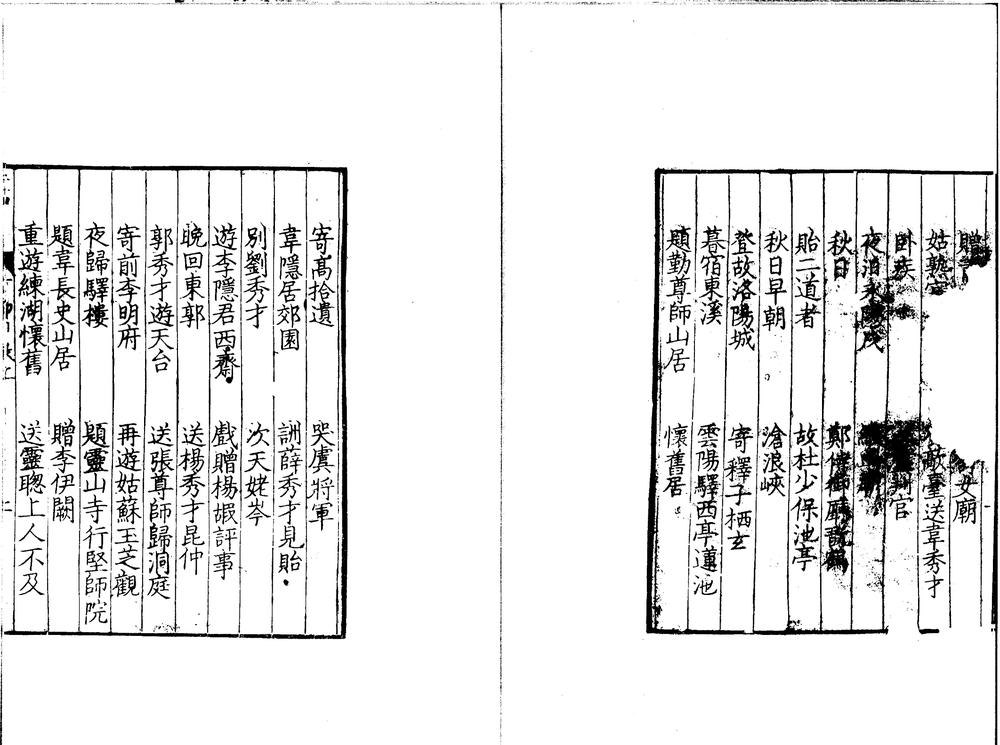 贈 女廟
姑熟官 敵臺送韋秀才
臥疾 判官
夜泊永陽戍
秋日 鄭侍御廳翫鶴
貽二道者 故杜少保池亭
秋日早朝 滄浪峽
登故洛陽城 寄釋子栖玄
暮宿東溪 雲陽驛西亭蓮池
題勤尊師山居 懷舊居
寄高拾遺 哭虞將軍
韋隱居郊園 詶薛秀才見貽
別劉秀才 次天姥岑
遊李隱君西齋 戲贈楊嘏評事
晚回東郭 送楊秀才昆仲
郭秀才遊天台 送張尊師歸洞庭
寄前李明府 再遊姑蘇玉芝觀
夜歸驛樓 題靈山寺行堅師院
題韋長史山居 贈李伊闕
重遊練湖懷舊 送靈聰上人不及